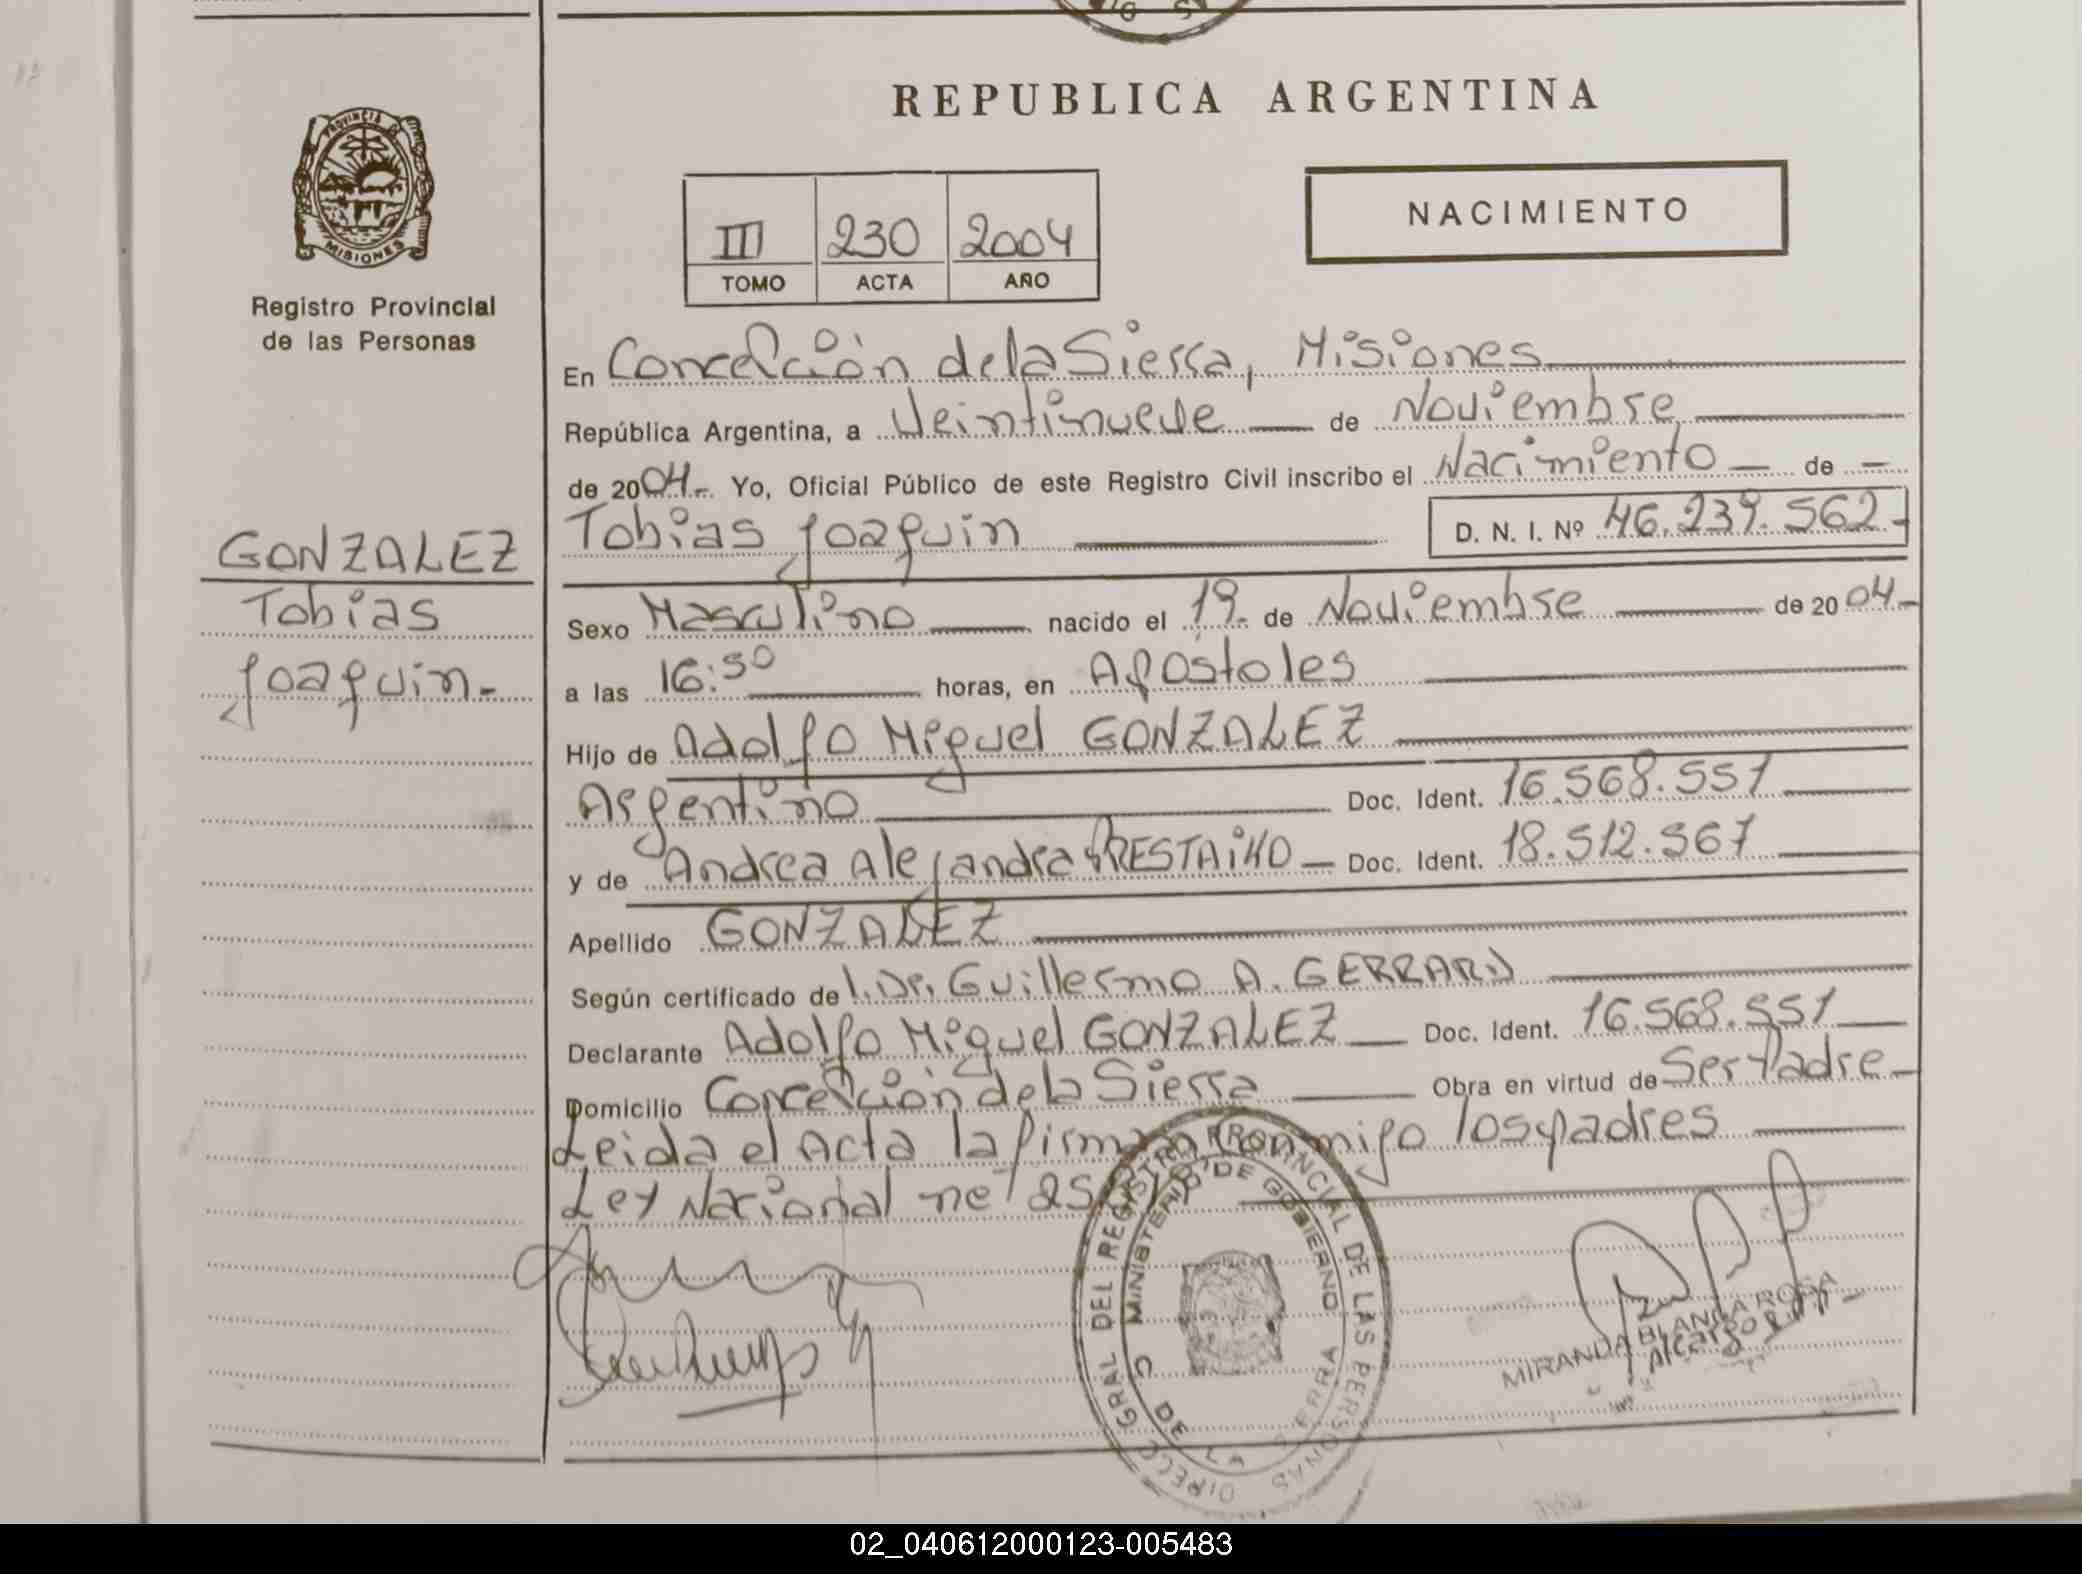 REPUBLICA ARGENTINA
PROVINCIA DE MISIONES
Registro Provincial
de las Personas
III 230 2004
TOMO ACTA AÑO
NACIMIENTO
En Concepción de la Sierra, Misiones
República Argentina, a Veintinueve de Noviembre
de 2004.- Yo, Oficial Público de este Registro Civil inscribo el Nacimiento de
Tobias Joaquin D. N. I. Nº 46.239.562.-
GONZALEZ
Tobias
Joaquin.-
Sexo Masculino nacido el 19. de Noviembre de 2004.-
a las 16:50 horas, en Apostoles
Hijo de Adolfo Miguel GONZALEZ
Argentino Doc. Ident. 16.568.551
y de Andrea Alejandra Doc. Ident. 18.512.567
Apellido GONZALEZ
Según certificado de Dr. Guillermo A. GERRARD
Declarante Adolfo Miguel GONZALEZ Doc. Ident. 16.568.551
Domicilio Concepción de la Sierra Obra en virtud de Ser Padre.-
Leida el Acta la firman conmigo los padres
Ley Nacional nº
DIRECC GRAL DEL REGISTRO PROVINCIAL DE LAS PERSONAS
MINISTERIO DE GOBIERNO
C. DE LA SIERRA
MIRANDA BLANCA ROSA
02_040612000123-005483